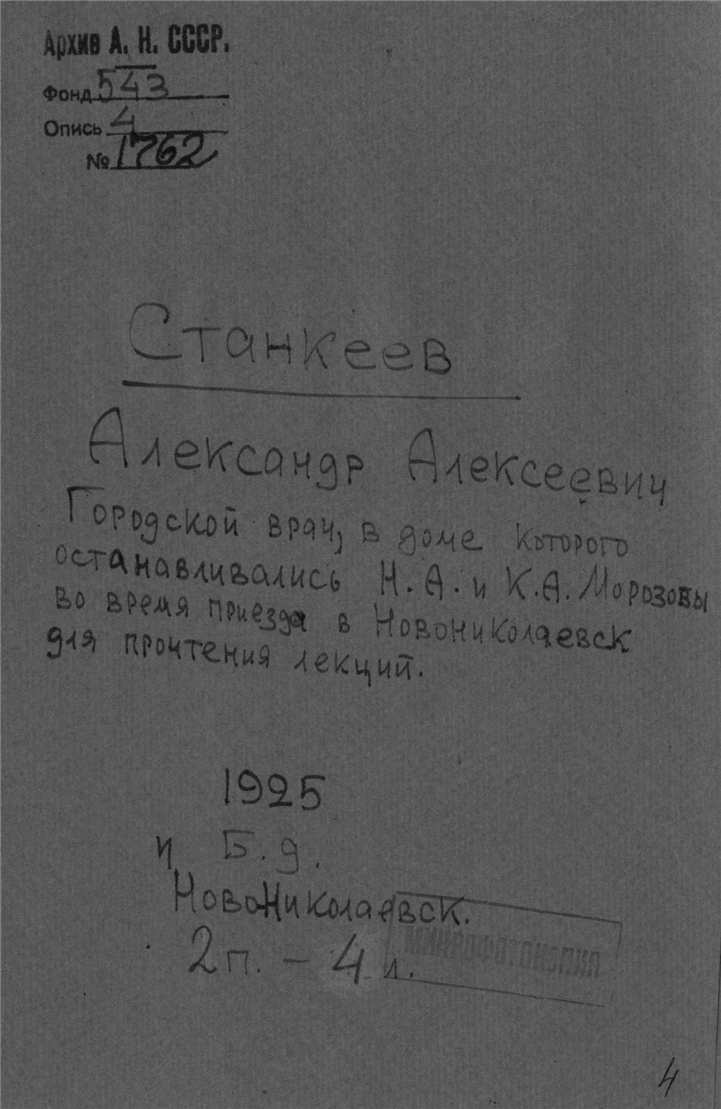 Архив А. Н. СССР.
Фонд 543
Опись 4
№ 1762
Станкеев
Александр Алексеевич
Городской врач, в доме которого
останавливались Н. А. и К. А. Морозовы
во время приезда в Новониколаевск
для прочтения лекций.
1925
и Б. д.
Новониколаевск.
2 п. – 4 л.
МИКРОФОТОКОПИЯ
4